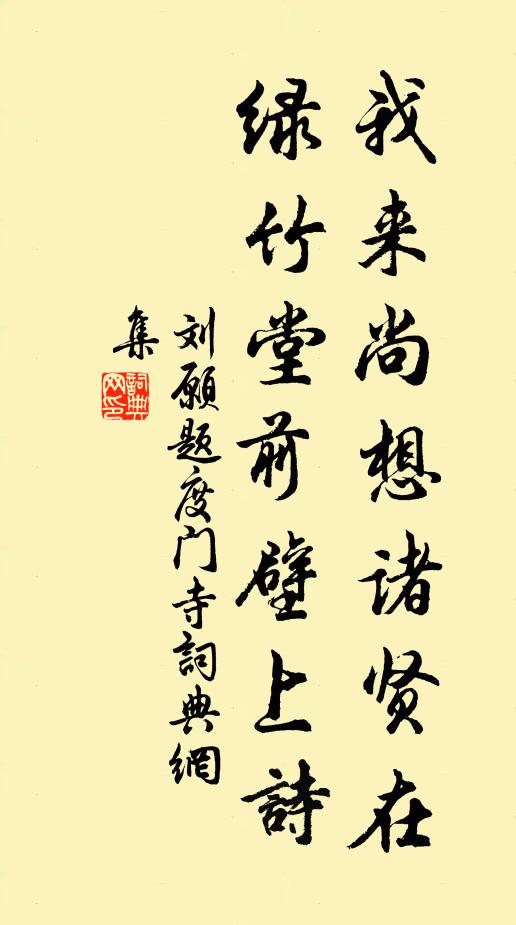 我来尚想诸贤在
绿竹堂前壁上詩
刘愿题度门寺詞典網
集
詞典
网印